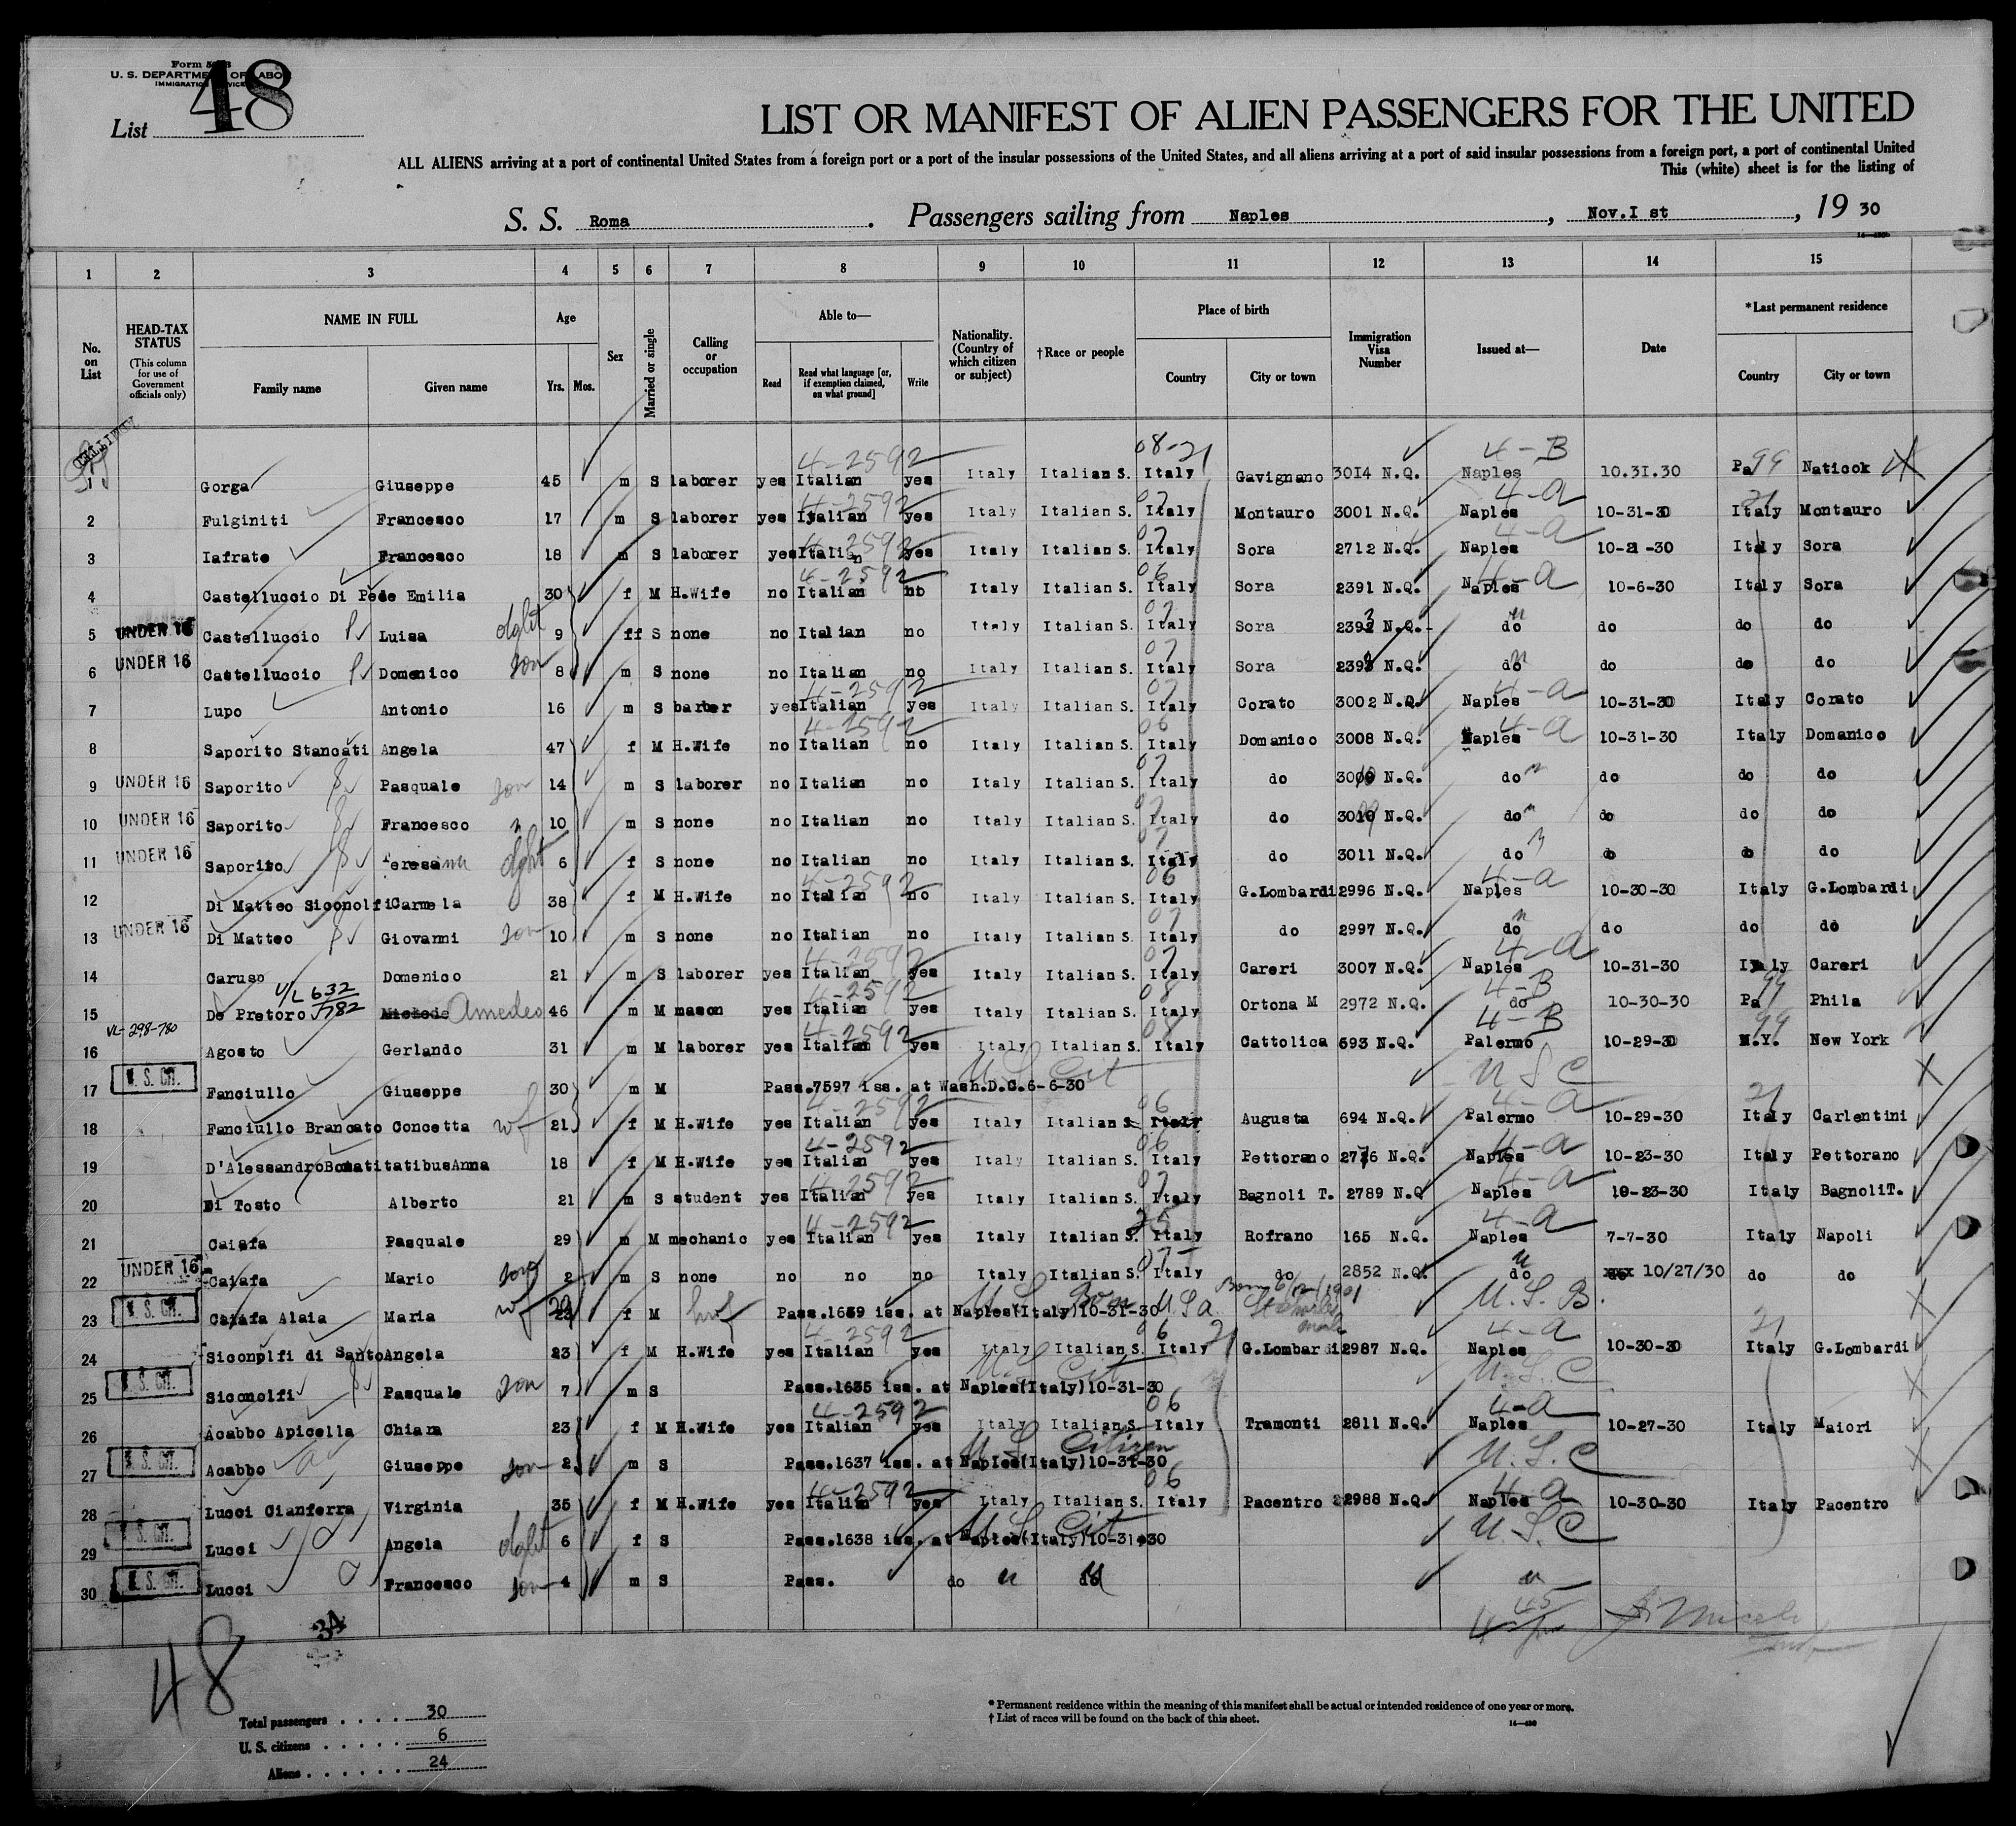 Form
U. S. DEPARTMENT OF LABOR
IMMIGRATION SERVICE
List 48
LIST OR MANIFEST OF ALIEN PASSENGERS FOR THE UNITED
ALL ALIENS arriving at a port of continental United States from a foreign port or a port of the insular possessions of the United States, and all aliens arriving at a port of said insular possessions from a foreign port, a port of continental United
This (white) sheet is for the listing of
S. S. Roma . Passengers sailing from Naples , Nov.I st , 19 30
1 2 3 4 5 6 7 8 9 10 11 12 13 14 15
No. on List
HEAD-TAX STATUS (This column for use of Government officials only)
NAME IN FULL Family name Given name
Age Yrs. Mos.
Sex
Married or single
Calling or occupation
Able to— Read Read what language [or, if exemption claimed, on what ground] Write
Nationality. (Country of which citizen or subject)
†Race or people
Place of birth Country City or town
Immigration Visa Number
Issued at—
Date
*Last permanent residence Country City or town
4-2592 08-21 4-B 99
1 Gorga Giuseppe 45 m S laborer yes Italian yes Italy Italian S. Italy Gavignano 3014 N.Q. Naples 10.31.30 Pa Naticok
4-2592 07 4-a 21
2 Fulginiti Francesco 17 m S laborer yes Italian yes Italy Italian S. Italy Montauro 3001 N.Q. Naples 10-31-30 Italy Montauro
4-2592 07 4-a
3 Iafrate Francesco 18 m S laborer yes Italian yes Italy Italian S. Italy Sora 2712 N.Q. Naples 10-21-30 Italy Sora
4-2592 06 4-a
4 Castelluccio Di Pede Emilia 30 f M H.Wife no Italian no Italy Italian S. Italy Sora 2391 N.Q. Naples 10-6-30 Italy Sora
5 UNDER 16 Castelluccio Luisa dght 9 ff S none no Italian no Italy Italian S. 07 Italy Sora 2392 N.Q. do do do do
6 UNDER 16 Castelluccio Domenico son 8 m S none no Italian no Italy Italian S. 07 Italy Sora 2393 N.Q. do do do do
4-2592 07 4-a
7 Lupo Antonio 16 m S barber yes Italian yes Italy Italian S. Italy Corato 3002 N.Q. Naples 10-31-30 Italy Corato
4-2592 06 4-a
8 Saporito Stancati Angela 47 f M H.Wife no Italian no Italy Italian S. Italy Domanico 3008 N.Q. Naples 10-31-30 Italy Domanico
9 UNDER 16 Saporito Pasquale son 14 m S laborer no Italian no Italy Italian S. 07 Italy do N.Q. do do do do
10 UNDER 16 Saporito Francesco 10 m S none no Italian no Italy Italian S. 07 Italy do N.Q. do do do do
11 UNDER 16 Saporito Teresa dght 6 f S none no Italian no Italy Italian S. 07 Italy do 3011 N.Q. do do do do
4-2592 06 4-a
12 Di Matteo Siconolfi Carmela 38 f M H.Wife no Italian no Italy Italian S. Italy G.Lombardi 2996 N.Q. Naples 10-30-30 Italy G.Lombardi
13 UNDER 16 Di Matteo Giovanni son 10 m S none no Italian no Italy Italian S. 07 Italy do 2997 N.Q. do do do do
4-2592 07 4-a
14 Caruso Domenico 21 m S laborer yes Italian yes Italy Italian S. Italy Careri 3007 N.Q. Naples 10-31-30 Italy Careri
V/L 632 4-2592 08 4-B 99
15 De Pretoro 782 Michele Amedeo 46 m M mason yes Italian yes Italy Italian S. Italy Ortona M 2972 N.Q. do 10-30-30 Pa Phila
VL-298-780 4-2592 08 4-B 99
16 Agosto Gerlando 31 m M laborer yes Italian yes Italy Italian S. Italy Cattolica 693 N.Q. Palermo 10-29-30 N.Y. New York
U.S. CIT. U S Cit U S C
17 Fanciullo Giuseppe 30 m M Pass.7597 iss. at Wash.D.C.6-6-30
4-2592 06 4-a 21
18 Fanciullo Brancato Concetta wf 21 f M H.Wife yes Italian yes Italy Italian S. Italy Augusta 694 N.Q. Palermo 10-29-30 Italy Carlentini
4-2592 06 4-a
19 D'Alessandro Anna 18 f M H.Wife yes Italian yes Italy Italian S. Italy Pettorano 2776 N.Q. Naples 10-23-30 Italy Pettorano
4-2592 07 4-a
20 Di Tosto Alberto 21 m S student yes Italian yes Italy Italian S. Italy Bagnoli T. 2789 N.Q Naples 10-23-30 Italy BagnoliT.
4-2592 25 4-a
21 Caiafa Pasquale 29 m M mechanic yes Italian yes Italy Italian S. Italy Rofrano 165 N.Q. Naples 7-7-30 Italy Napoli
22 UNDER 16 Caiafa Mario son 2 m S none no no no Italy Italian S. 07 Italy do 2852 N.Q. do 10/27/30 do do
U.S. CIT. U S Born U S a Born 6/12/1901 U. S. B.
23 Caiafa Alaia Maria wf 29 f M hwf Pass.1639 iss. at Naples(Italy)10-31-30
4-2592 06 21 4-a 21
24 Siconolfi di Santo Angela 23 f M H.Wife yes Italian yes Italy Italian S. Italy G.Lombardi 2987 N.Q. Naples 10-30-30 Italy G.Lombardi
U.S. CIT. U S Cit U. S. C
25 Siconolfi Pasquale son 7 m S Pass.1635 iss. at Naples(Italy)10-31-30
4-2592 06 4-a
26 Acabbo Apicella Chiara 23 f M H.Wife yes Italian yes Italy Italian S. Italy Tramonti 2811 N.Q. Naples 10-27-30 Italy Maiori
U.S. CIT. U S Citizen U. S. C
27 Acabbo Giuseppe son 2 m S Pass.1637 iss. at Naples(Italy)10-31-30
4-2592 06 4-a
28 Lucci Cianferra Virginia 35 f M H.Wife yes Italian yes Italy Italian S. Italy Pacentro 2988 N.Q. Naples 10-30-30 Italy Pacentro
U.S. CIT. U S Cit U. S. C
29 Lucci Angela dght 6 f S Pass.1638 iss. at Naples(Italy)10-31-30
30 U.S. CIT. Lucci Francesco son 4 m S Pass. do do
34
48
Total passengers . . . . 30
U. S. citizens . . . . . 6
Aliens . . . . . . 24
* Permanent residence within the meaning of this manifest shall be actual or intended residence of one year or more.
† List of races will be found on the back of this sheet.